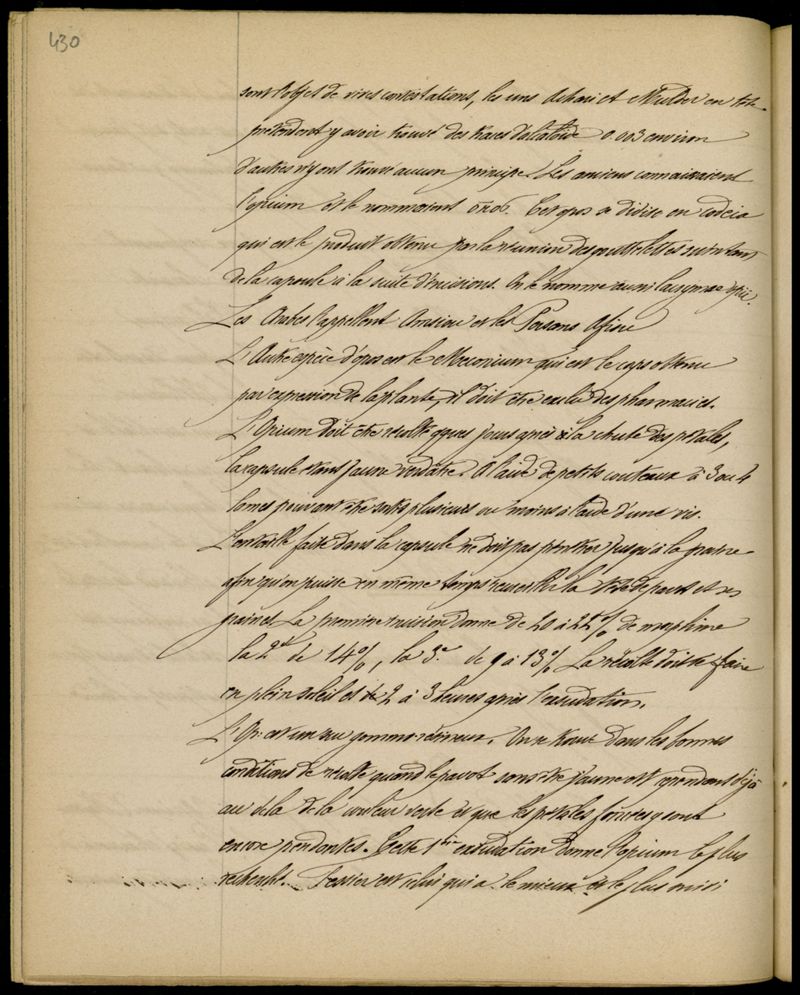 430
sont l'objet de vives contestations, les uns et Mulder en
pretendent y avoir trouvé des traces d'alcaloïde 0.003 environ
d'autres n'y ont trouvé aucun principe. Les anciens connaissaient
l'opium et le nommaient οπος. Cet opos se divise en
qui est le produit obtenu par la réunion des gouttelettes
de la capsule à la suite d'incisions. On le nomme
Les Arabes l'appellent et les Persans Afiun
L'Autre espèce d'opos est le Meconium qui est le obtenu
par expression de la plante, il doit être exclu des pharmacies.
L'Opium doit être récolté qques jours après la chute des pétales,
la capsule étant jaune verdâtre. A l'aide de petits couteaux à 3 ou 4
lames pouvant être plusieurs ou moins à l'aide d'une vis.
L'entaille faite dans la capsule ne doit pas pénétrer jusqu'à la graine
afin qu'on puisse en même temps recueillir la tête de pavot et ses
graines. La première incision donne de 20 à 22% de morphine
la 2de de 14%, la 3e de 9 à 13% La récolte doit se faire
en plein soleil et de 2 à 3 heures après l'exsudation.
L'Op: est un suc gommo-résineux. On se trouve dans les bonnes
conditions de récolte quand le pavot sans être jaune est cependant déjà
au delà de la couleur verte et que les pétales y sont
encore pendantes. Cette 1ère exsudation donne l'opium le plus
recherché. Tessier est celui qui a le mieux et le plus